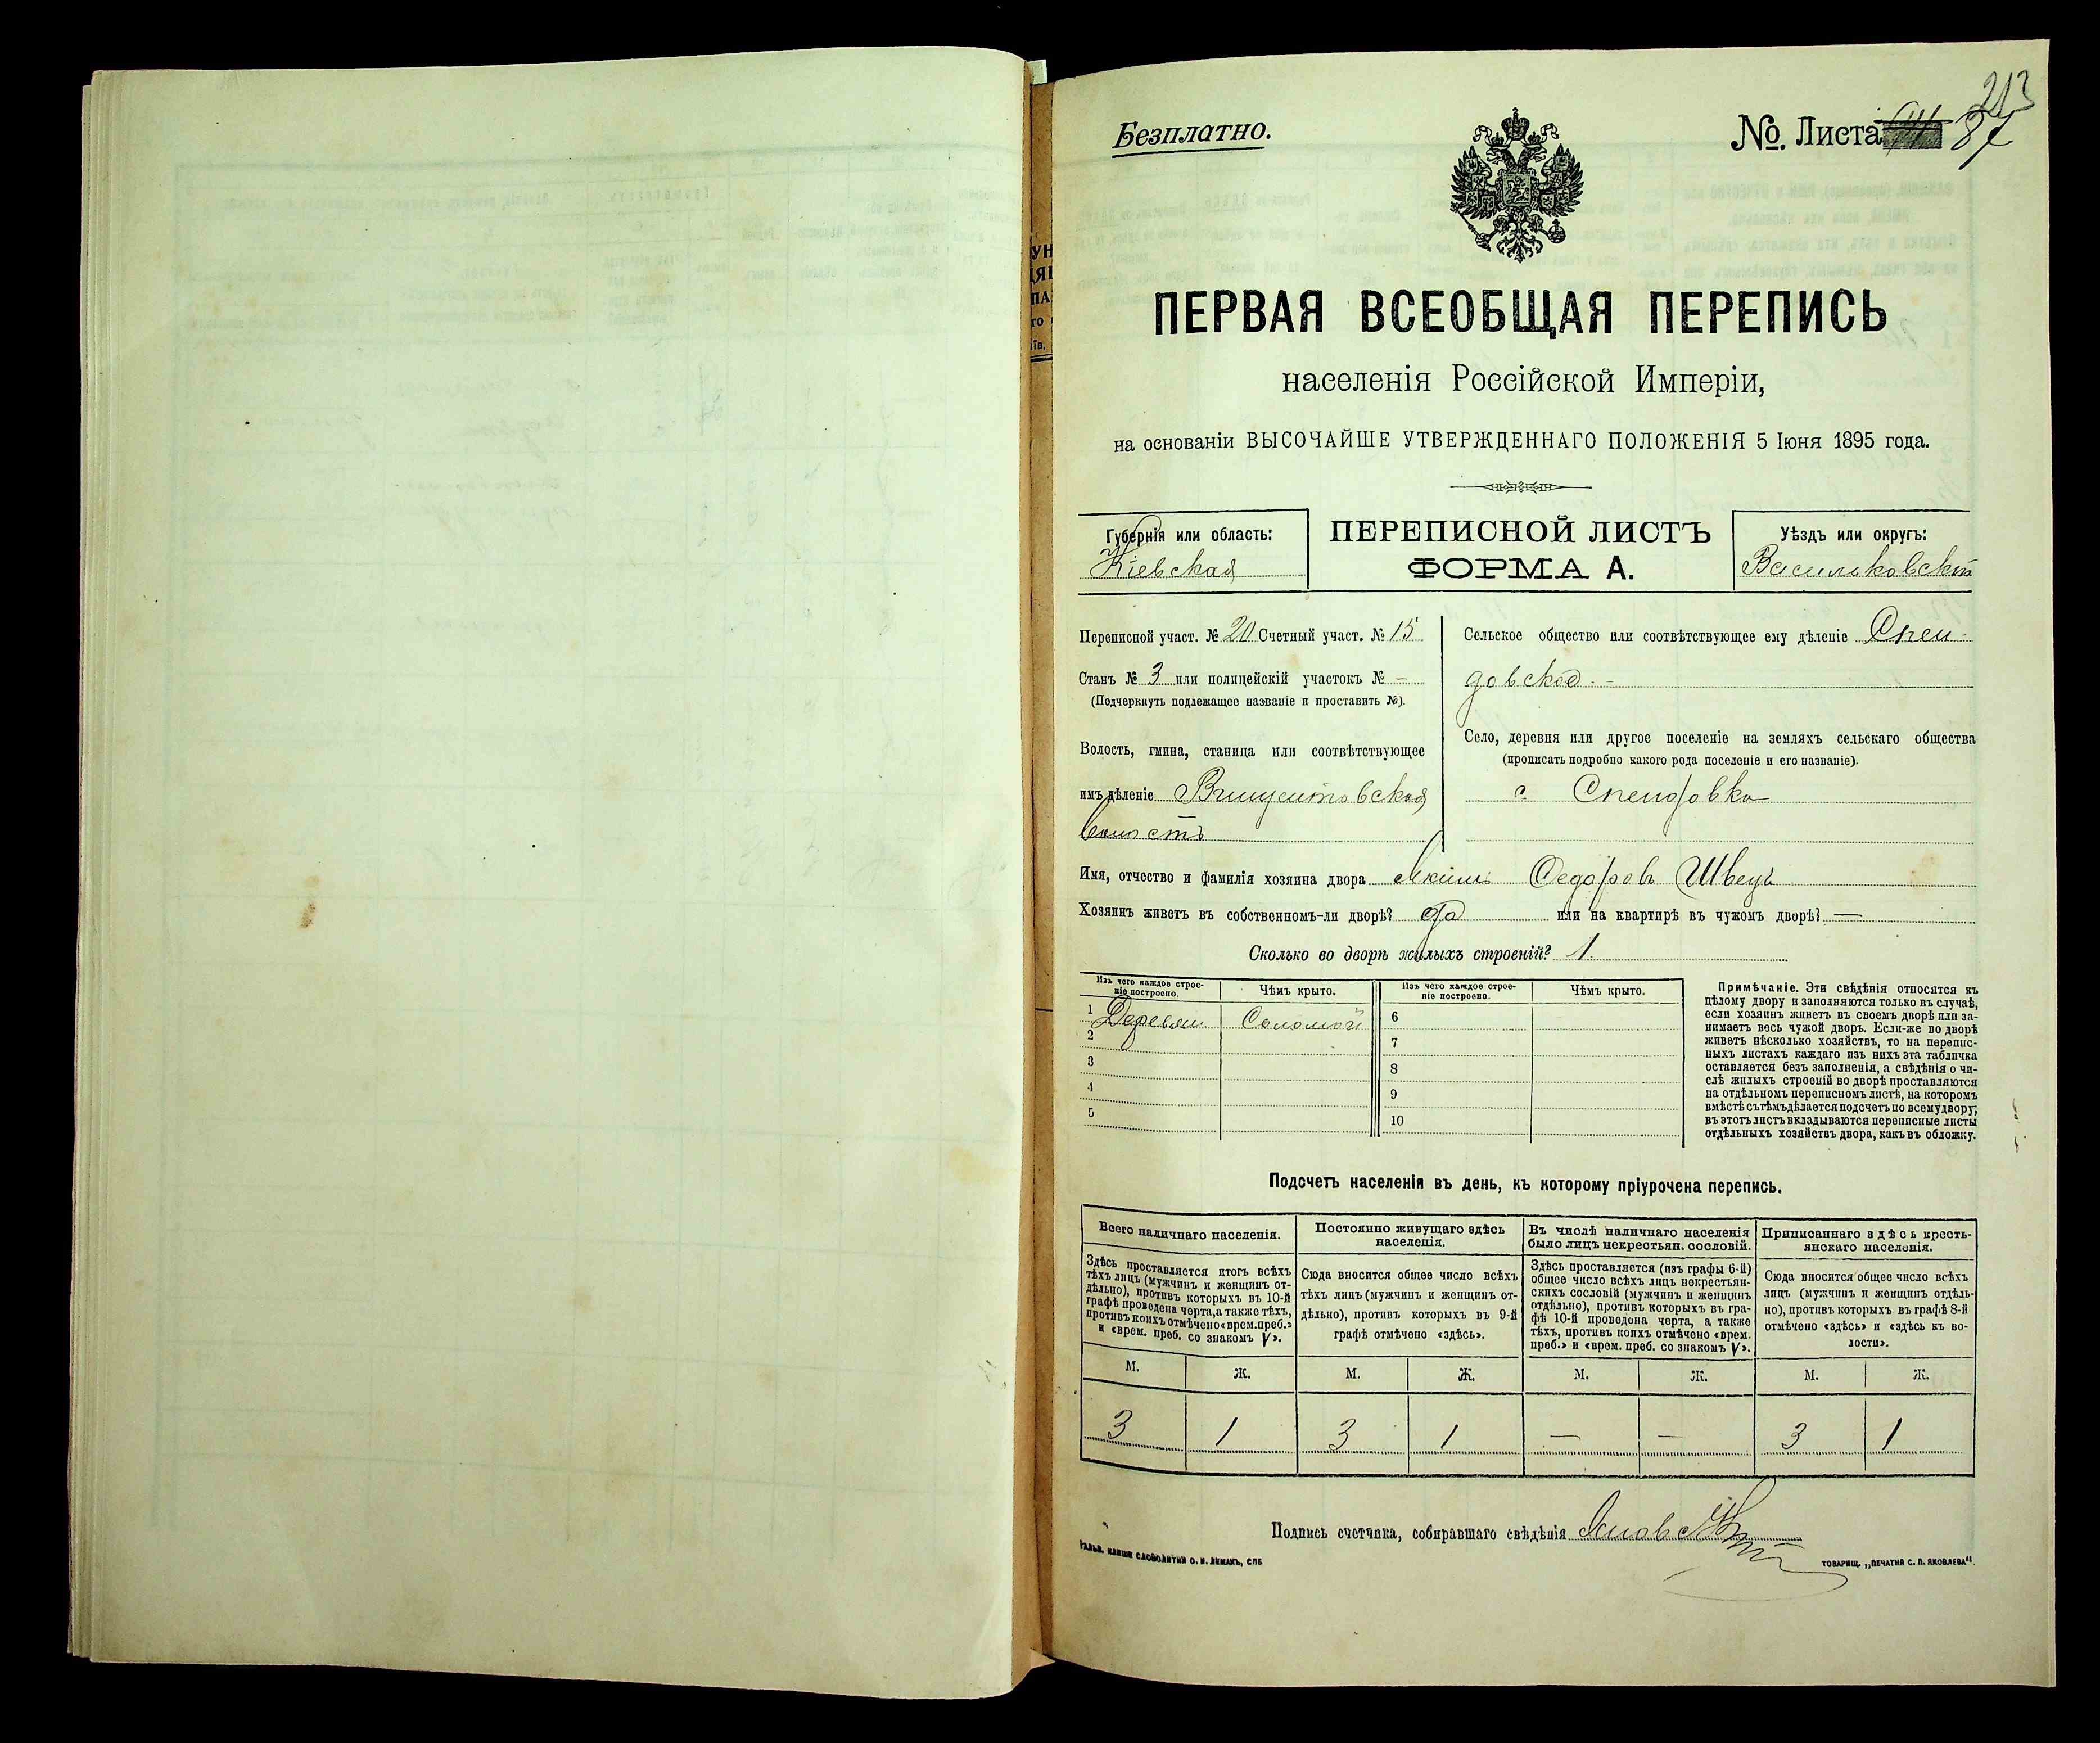 213
Безплатно.
№. Листа 87
ПЕРВАЯ ВСЕОБЩАЯ ПЕРЕПИСЬ
населенія Россійской Имперіи,
на основаніи ВЫСОЧАЙШЕ УТВЕРЖДЕННАГО ПОЛОЖЕНІЯ 5 Іюня 1895 года.
Губернія или область:
Кіевская
ПЕРЕПИСНОЙ ЛИСТЪ
ФОРМА А.
Уѣздъ или округъ:
Васильковскій
Переписной участ. № 20 Счетный участ. № 15
Станъ № 3 или полицейскій участокъ № —
(Подчеркнуть подлежащее названіе и проставить №).
Волость, гмина, станица или соотвѣтствующее
имъ дѣленіе Винцентовская
волость
Сельское общество или соотвѣтствующее ему дѣленіе Спен-
довское. -
Село, деревня или другое поселеніе на земляхъ сельскаго общества
(прописать подробно какого рода поселеніе и его названіе).
с. Спендовка
Имя, отчество и фамилія хозяина двора Якимъ Федоровъ Швецъ
Хозяинъ живетъ въ собственномъ-ли дворѣ? Да или на квартирѣ въ чужомъ дворѣ? —
Сколько во дворѣ жилыхъ строеній? 1.
Изъ чего каждое строе-
ніе построено.
Чѣмъ крыто.
Изъ чего каждое строе-
ніе построено.
Чѣмъ крыто.
1 Деревян. Соломой 6
2 7
3 8
4 9
5 10
Примѣчаніе. Эти свѣдѣнія относятся къ
цѣлому двору и заполняются только въ случаѣ,
если хозяинъ живетъ въ своемъ дворѣ или за-
нимаетъ весь чужой дворъ. Если-же во дворѣ
живетъ нѣсколько хозяйствъ, то на перепис-
ныхъ листахъ каждаго изъ нихъ эта табличка
оставляется безъ заполненія, а свѣдѣнія о чи-
слѣ жилыхъ строеній во дворѣ проставляются
на отдѣльномъ переписномъ листѣ, на которомъ
вмѣстѣ съ тѣмъ дѣлается подсчетъ по всему двору;
въ этотъ листъ вкладываются переписные листы
отдѣльныхъ хозяйствъ двора, какъ въ обложку.
Подсчетъ населенія въ день, къ которому пріурочена перепись.
Всего наличнаго населенія.
Здѣсь проставляется итогъ всѣхъ
тѣхъ лицъ (мужчинъ и женщинъ от-
дѣльно), противъ которыхъ въ 10-й
графѣ проведена черта, а также тѣхъ,
противъ коихъ отмѣчено «врем. преб.»
и «врем. преб. со знакомъ V».
Постоянно живущаго здѣсь
населенія.
Сюда вносится общее число всѣхъ
тѣхъ лицъ (мужчинъ и женщинъ от-
дѣльно), противъ которыхъ въ 9-й
графѣ отмѣчено «здѣсь».
Въ числѣ наличнаго населенія
было лицъ некрестьян. сословій.
Здѣсь проставляется (изъ графы 6-й)
общее число всѣхъ лицъ некрестьян-
скихъ сословій (мужчинъ и женщинъ
отдѣльно), противъ которыхъ въ гра-
фѣ 10-й проведена черта, а также
тѣхъ, противъ коихъ отмѣчено «врем.
преб.» и «врем. преб. со знакомъ V».
Приписаннаго здѣсь кресть-
янскаго населенія.
Сюда вносится общее число всѣхъ
лицъ (мужчинъ и женщинъ отдѣль-
но), противъ которыхъ въ графѣ 8-й
отмѣчено «здѣсь» и «здѣсь къ во-
лости».
М. Ж. М. Ж. М. Ж. М. Ж.
3 1 3 1 — — 3 1
Подпись счетчика, собиравшаго свѣдѣнія
Гальв. клише словолитни О. И. Леманъ, СПБ
ТОВАРИЩ. „ПЕЧАТНЯ С. П. ЯКОВЛЕВА“.